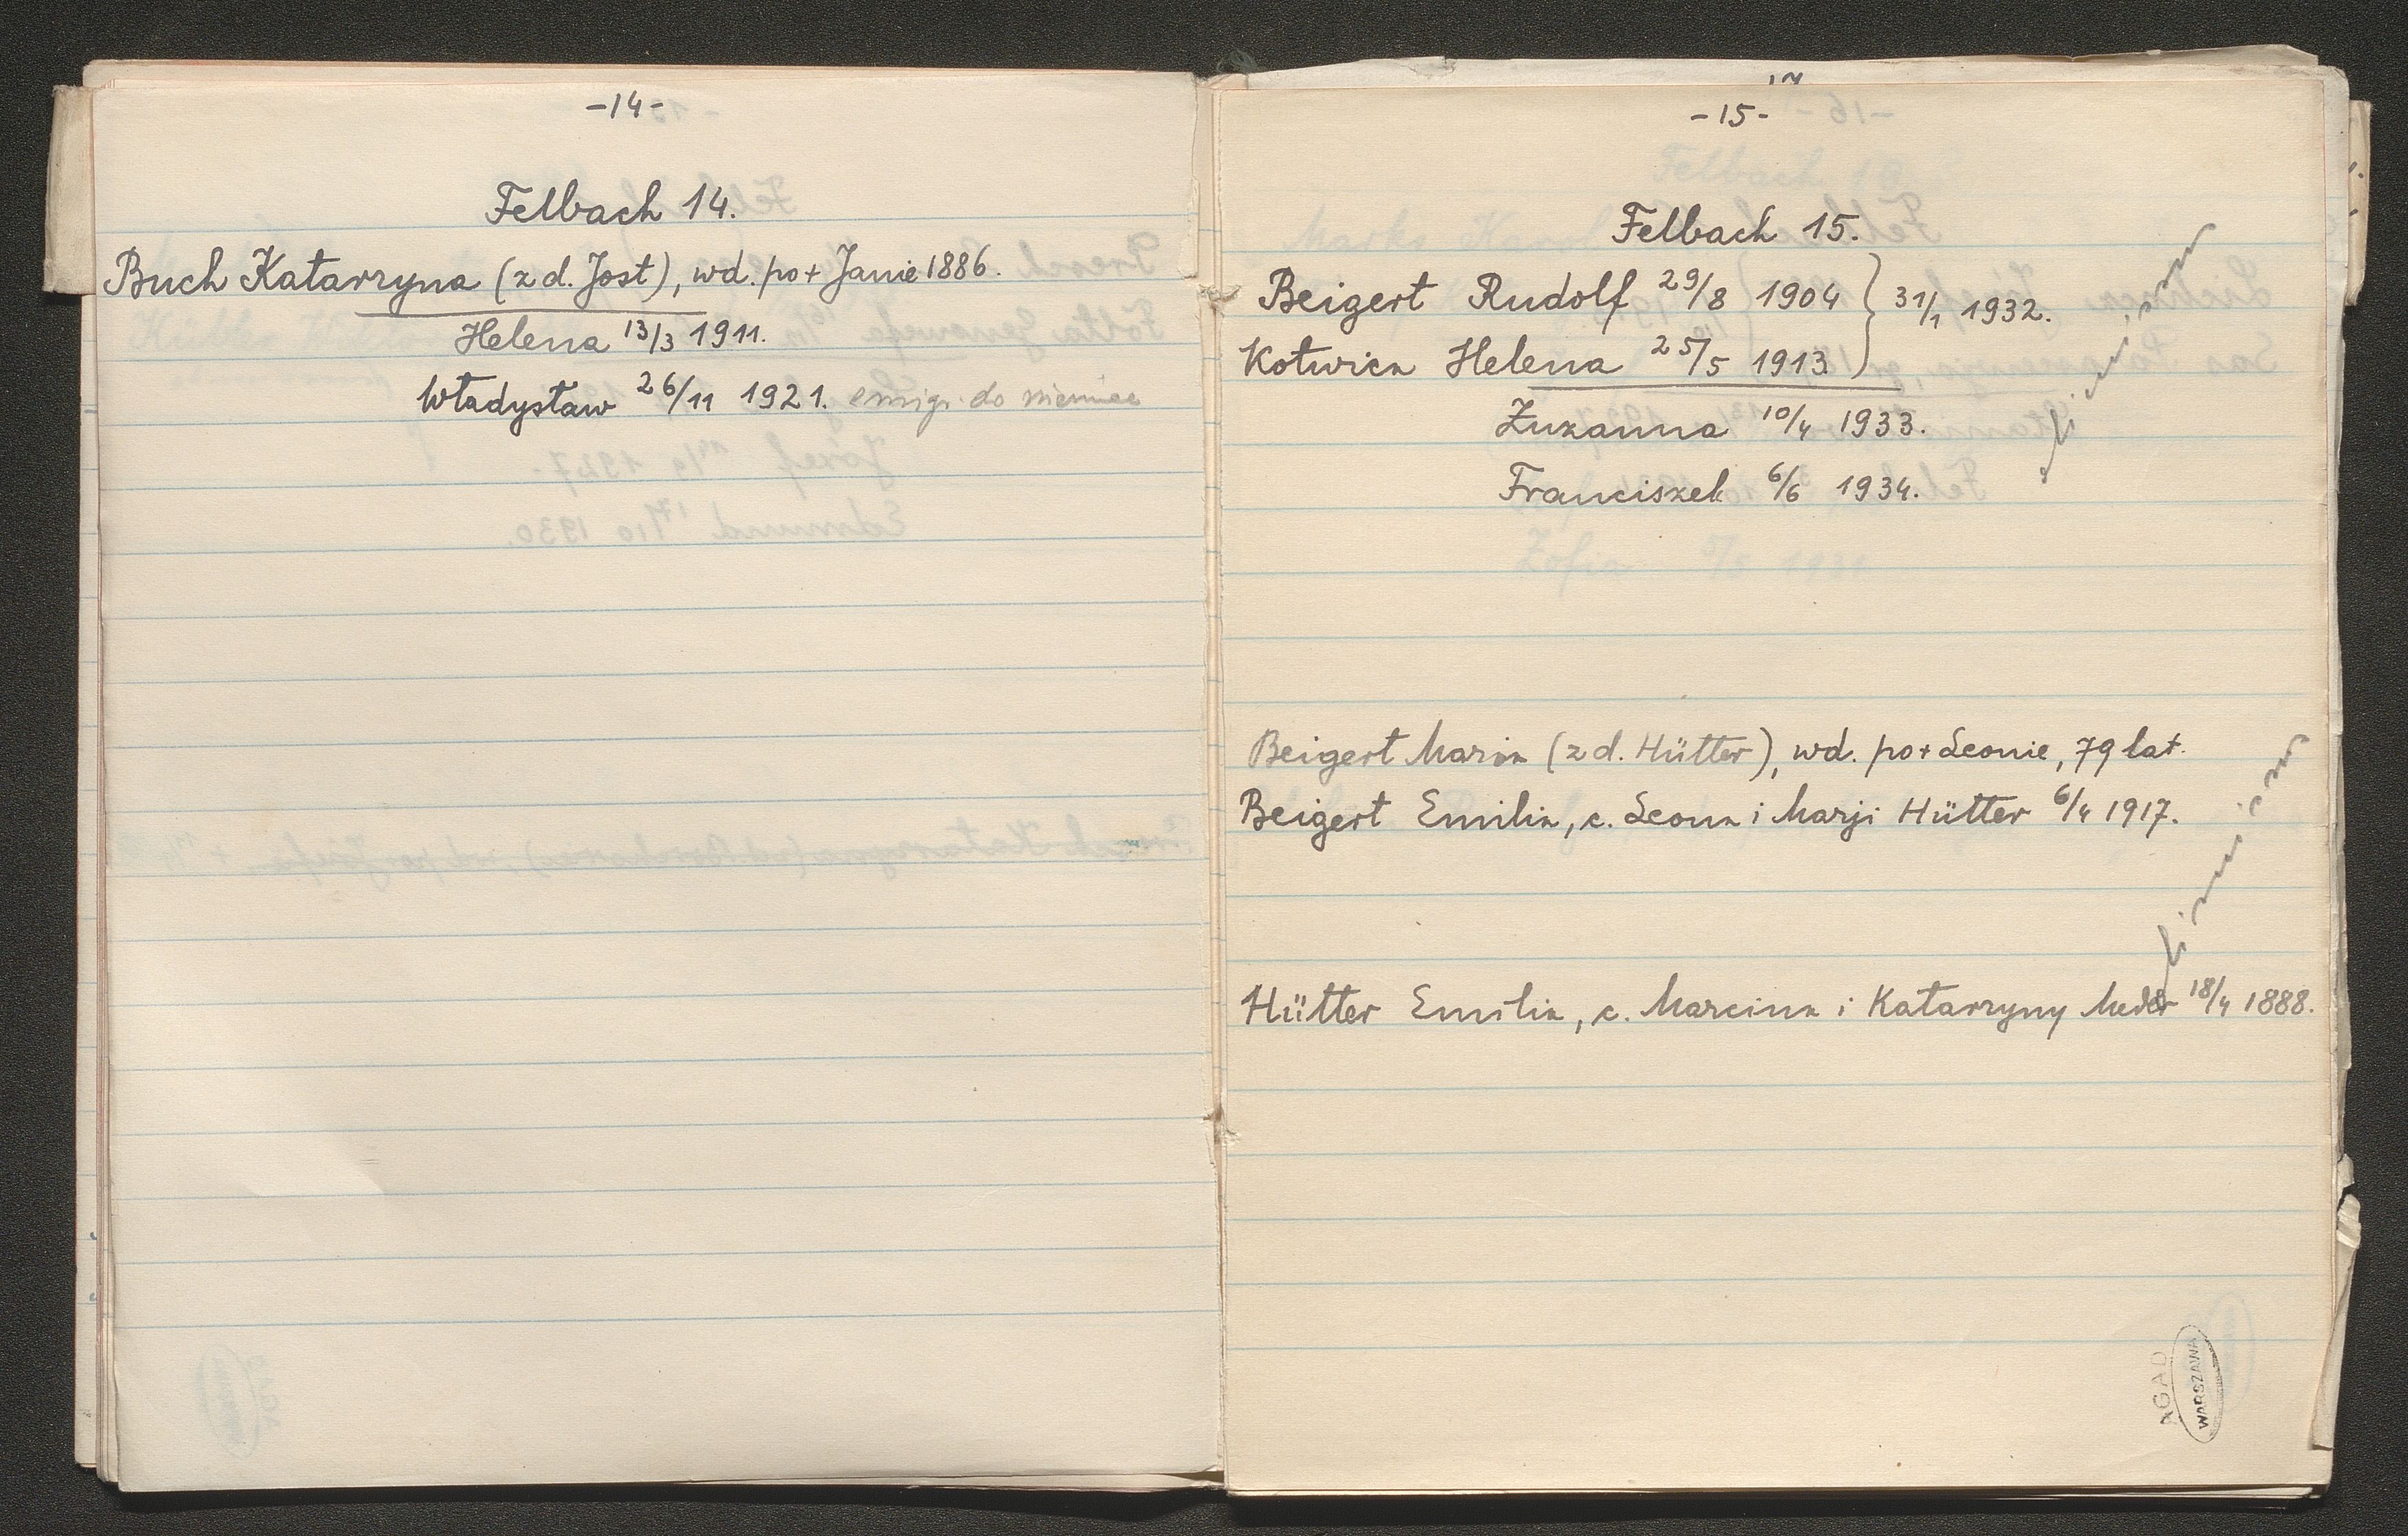 -14-
Felbach 14.
Buch Katarzyna (z d. Jost), wd. po + Janie 1886.
Helena 13/3 1911.
Władysław 26/11 1921. emigr. do niemiec
-15-
Felbach 15.
Beigert Rudolf 29/8 1904 } 31/1 1932.
Kotwica Helena 25/5 1913 }
Zuzanna 10/4 1933.
Franciszek 6/6 1934.
Beigert Maria (z d. Hütter), wd. po + Leonie, 79 lat.
Beigert Emilia, c. Leona i Marji Hütter 6/4 1917.
Hütter Emilia, c. Marcina i Katarzyny 18/4 1888.
AGAD
WARSZAWA